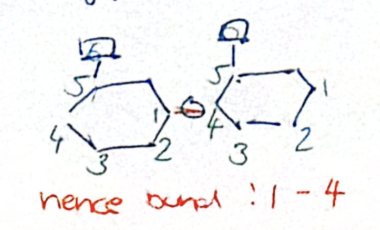 6 6
5 5
1 O 1
4 4
3 2 3 2
hence bund : 1 - 4